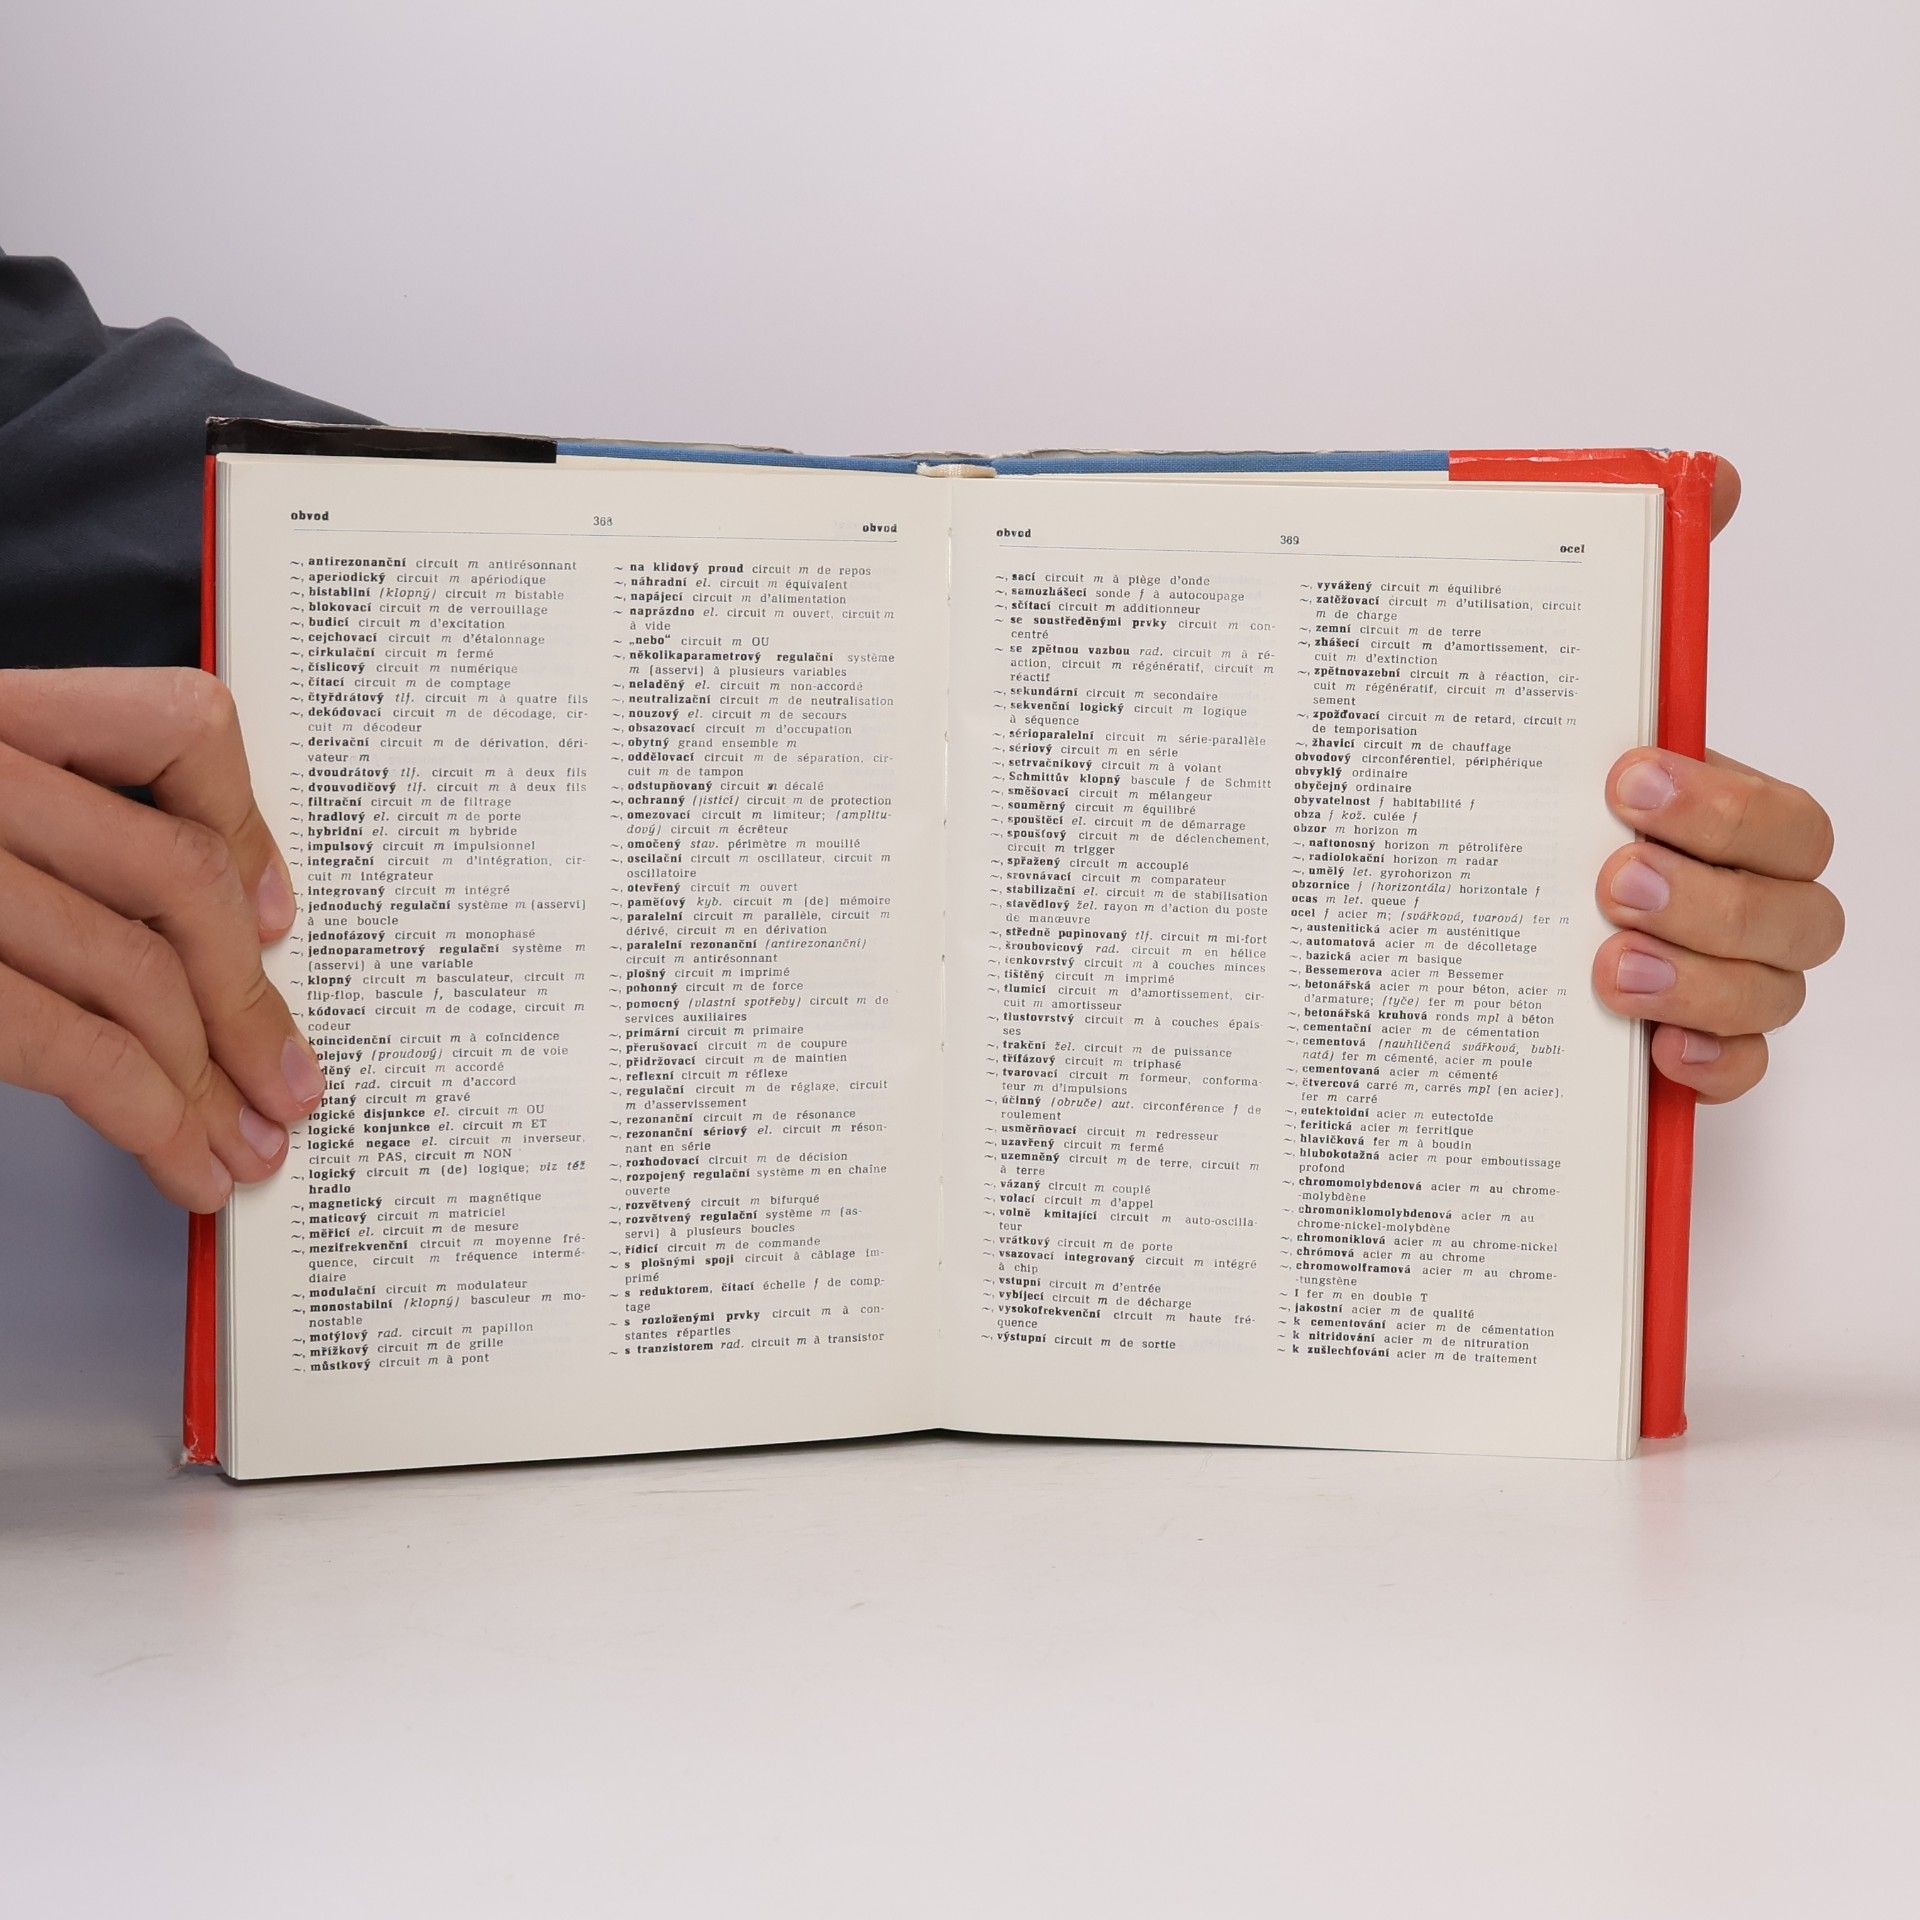 obvod 368 obvod
~, antirezonanční circuit m antirésonnant
~, aperiodický circuit m apériodique
~, bistabilní (klopný) circuit m bistable
~, blokovací circuit m de verrouillage
~, budicí circuit m d'excitation
~, cejchovací circuit m d'étalonnage
~, cirkulační circuit m fermé
~, číslicový circuit m numérique
~, čítací circuit m de comptage
~, čtyřdrátový tlf. circuit m à quatre fils
~, dekódovací circuit m de décodage, cir-
cuit m décodeur
~, derivační circuit m de dérivation, déri-
vateur m
~, dvoudrátový tlf. circuit m à deux fils
~, dvouvodičový tlf. circuit m à deux fils
~, filtrační circuit m de filtrage
~, hradlový el. circuit m de porte
~, hybridní el. circuit m hybride
~, impulsový circuit m impulsionnel
~, integrační circuit m d'intégration, cir-
cuit m intégrateur
~, integrovaný circuit m intégré
~, jednoduchý regulační système m (asservi)
à une boucle
~, jednofázový circuit m monophasé
~, jednoparametrový regulační système m
(asservi) à une variable
~, klopný circuit m basculateur, circuit m
flip-flop, bascule f, basculateur m
~, kódovací circuit m de codage, circuit m
codeur
koincidenční circuit m à coïncidence
olejový (proudový) circuit m de voie
děný el. circuit m accordé
dicí rad. circuit m d'accord
ptaný circuit m gravé
logické disjunkce el. circuit m OU
~ logické konjunkce el. circuit m ET
~ logické negace el. circuit m inverseur,
circuit m PAS, circuit m NON
~, logický circuit m (de) logique; viz též
hradlo
~, magnetický circuit m magnétique
~, maticový circuit m matriciel
~, měřicí el. circuit m de mesure
~, mezifrekvenční circuit m moyenne fré-
quence, circuit m fréquence intermé-
diaire
~, modulační circuit m modulateur
~, monostabilní (klopný) basculeur m mo-
nostable
~, motýlový rad. circuit m papillon
~, mřížkový circuit m de grille
~, můstkový circuit m à pont
~ na klidový proud circuit m de repos
~, náhradní el. circuit m équivalent
~, napájecí circuit m d'alimentation
~ naprázdno el. circuit m ouvert, circuit m
à vide
~ „nebo“ circuit m OU
~, několikaparametrový regulační système
m (asservi) à plusieurs variables
~, neladěný el. circuit m non-accordé
~, neutralizační circuit m de neutralisation
~, nouzový el. circuit m de secours
~, obsazovací circuit m d'occupation
~, obytný grand ensemble m
~, oddělovací circuit m de séparation, cir-
cuit m de tampon
~, odstupňovaný circuit m décalé
~, ochranný (jisticí) circuit m de protection
~, omezovací circuit m limiteur; (amplitu-
dový) circuit m écrêteur
~, omočený stav. périmètre m mouillé
~, oscilační circuit m oscillateur, circuit m
oscillatoire
~, otevřený circuit m ouvert
~, paměťový kyb. circuit m (de) mémoire
~, paralelní circuit m parallèle, circuit m
dérivé, circuit m en dérivation
~, paralelní rezonanční (antirezonanční)
circuit m antirésonnant
~, plošný circuit m imprimé
~, pohonný circuit m de force
~, pomocný (vlastní spotřeby) circuit m de
services auxiliaires
~, primární circuit m primaire
~, přerušovací circuit m de coupure
~, přidržovací circuit m de maintien
~, reflexní circuit m réflexe
~, regulační circuit m de réglage, circuit
m d'asservissement
~, rezonanční circuit m de résonance
~, rezonanční sériový el. circuit m réson-
nant en série
~, rozhodovací circuit m de décision
~, rozpojený regulační système m en chaîne
ouverte
~, rozvětvený circuit m bifurqué
~, rozvětvený regulační système m (as-
servi) à plusieurs boucles
~, řídicí circuit m de commande
~ s plošnými spoji circuit à câblage im-
primé
~ s reduktorem, čítací échelle f de comp-
tage
~ s rozloženými prvky circuit m à con-
stantes réparties
~ s tranzistorem rad. circuit m à transistor
obvod 369 ocel
~, sací circuit m à piège d'onde
~, samozhášecí sonde f à autocoupage
~, sčítací circuit m additionneur
~ se soustředěnými prvky circuit m con-
centré
~ se zpětnou vazbou rad. circuit m à ré-
action, circuit m régénératif, circuit m
réactif
~, sekundární circuit m secondaire
~, sekvenční logický circuit m logique
à séquence
~, sérioparalelní circuit m série-parallèle
~, sériový circuit m en série
~, setrvačníkový circuit m à volant
~, Schmittův klopný bascule f de Schmitt
~, směšovací circuit m mélangeur
~, souměrný circuit m équilibré
~, spouštěcí el. circuit m de démarrage
~, spoušťový circuit m de déclenchement,
circuit m trigger
~, spřažený circuit m accouplé
~, srovnávací circuit m comparateur
~, stabilizační el. circuit m de stabilisation
~, stavědlový žel. rayon m d'action du poste
de manœuvre
~, středně pupinovaný tlf. circuit m mi-fort
~, šroubovicový rad. circuit m en hélice
~, tenkovrstvý circuit m à couches minces
~, tištěný circuit m imprimé
~, tlumicí circuit m d'amortissement, cir-
cuit m amortisseur
~, tlustovrstvý circuit m à couches épais-
ses
~, trakční žel. circuit m de puissance
~, třífázový circuit m triphasé
~, tvarovací circuit m formeur, conforma-
teur m d'impulsions
~, účinný (obruče) aut. circonférence f de
roulement
~, usměrňovací circuit m redresseur
~, uzavřený circuit m fermé
~, uzemněný circuit m de terre, circuit m
à terre
~, vázaný circuit m couplé
~, volací circuit m d'appel
~, volně kmitající circuit m auto-oscilla-
teur
~, vrátkový circuit m de porte
~, vsazovací integrovaný circuit m intégré
à chip
~, vstupní circuit m d'entrée
~, vybíjecí circuit m de décharge
~, vysokofrekvenční circuit m haute fré-
quence
~, výstupní circuit m de sortie
~, vyvážený circuit m équilibré
~, zatěžovací circuit m d'utilisation, circuit
m de charge
~, zemní circuit m de terre
~, zhášecí circuit m d'amortissement, cir-
cuit m d'extinction
~, zpětnovazební circuit m à réaction, cir-
cuit m régénératif, circuit m d'asservis-
sement
~, zpožďovací circuit m de retard, circuit m
de temporisation
~, žhavicí circuit m de chauffage
obvodový circonférentiel, périphérique
obvyklý ordinaire
obyčejný ordinaire
obyvatelnost f habitabilité f
obza f kož. culée f
obzor m horizon m
~, naftonosný horizon m pétrolifère
~, radiolokační horizon m radar
~, umělý let. gyrohorizon m
obzornice f (horizontála) horizontale f
ocas m let. queue f
ocel f acier m; (svářková, tvarová) fer m
~, austenitická acier m austénitique
~, automatová acier m de décolletage
~, bazická acier m basique
~, Bessemerova acier m Bessemer
~, betonářská acier m pour béton, acier m
d'armature; (tyče) fer m pour béton
~, betonářská kruhová ronds mpl à béton
~, cementační acier m de cémentation
~, cementová (nauhličená svářková, bubli-
natá) fer m cémenté, acier m poule
~, cementovaná acier m cémenté
~, čtvercová carré m, carrés mpl (en acier),
fer m carré
~, eutektoidní acier m eutectoïde
~, feritická acier m ferritique
~, hlavičková fer m à boudin
~, hlubokotažná acier m pour emboutissage
profond
~, chromomolybdenová acier m au chrome-
-molybdène
~, chromoniklomolybdenová acier m au
chrome-nickel-molybdène
~, chromoniklová acier m au chrome-nickel
~, chrómová acier m au chrome
~, chromowolframová acier m au chrome-
-tungstène
~ I fer m en double T
~, jakostní acier m de qualité
~ k cementování acier m de cémentation
~ k nitridování acier m de nitruration
~ k zušlechťování acier m de traitement